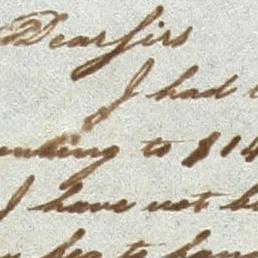 Dear Sirs
I had
unding to $14
I have not
to